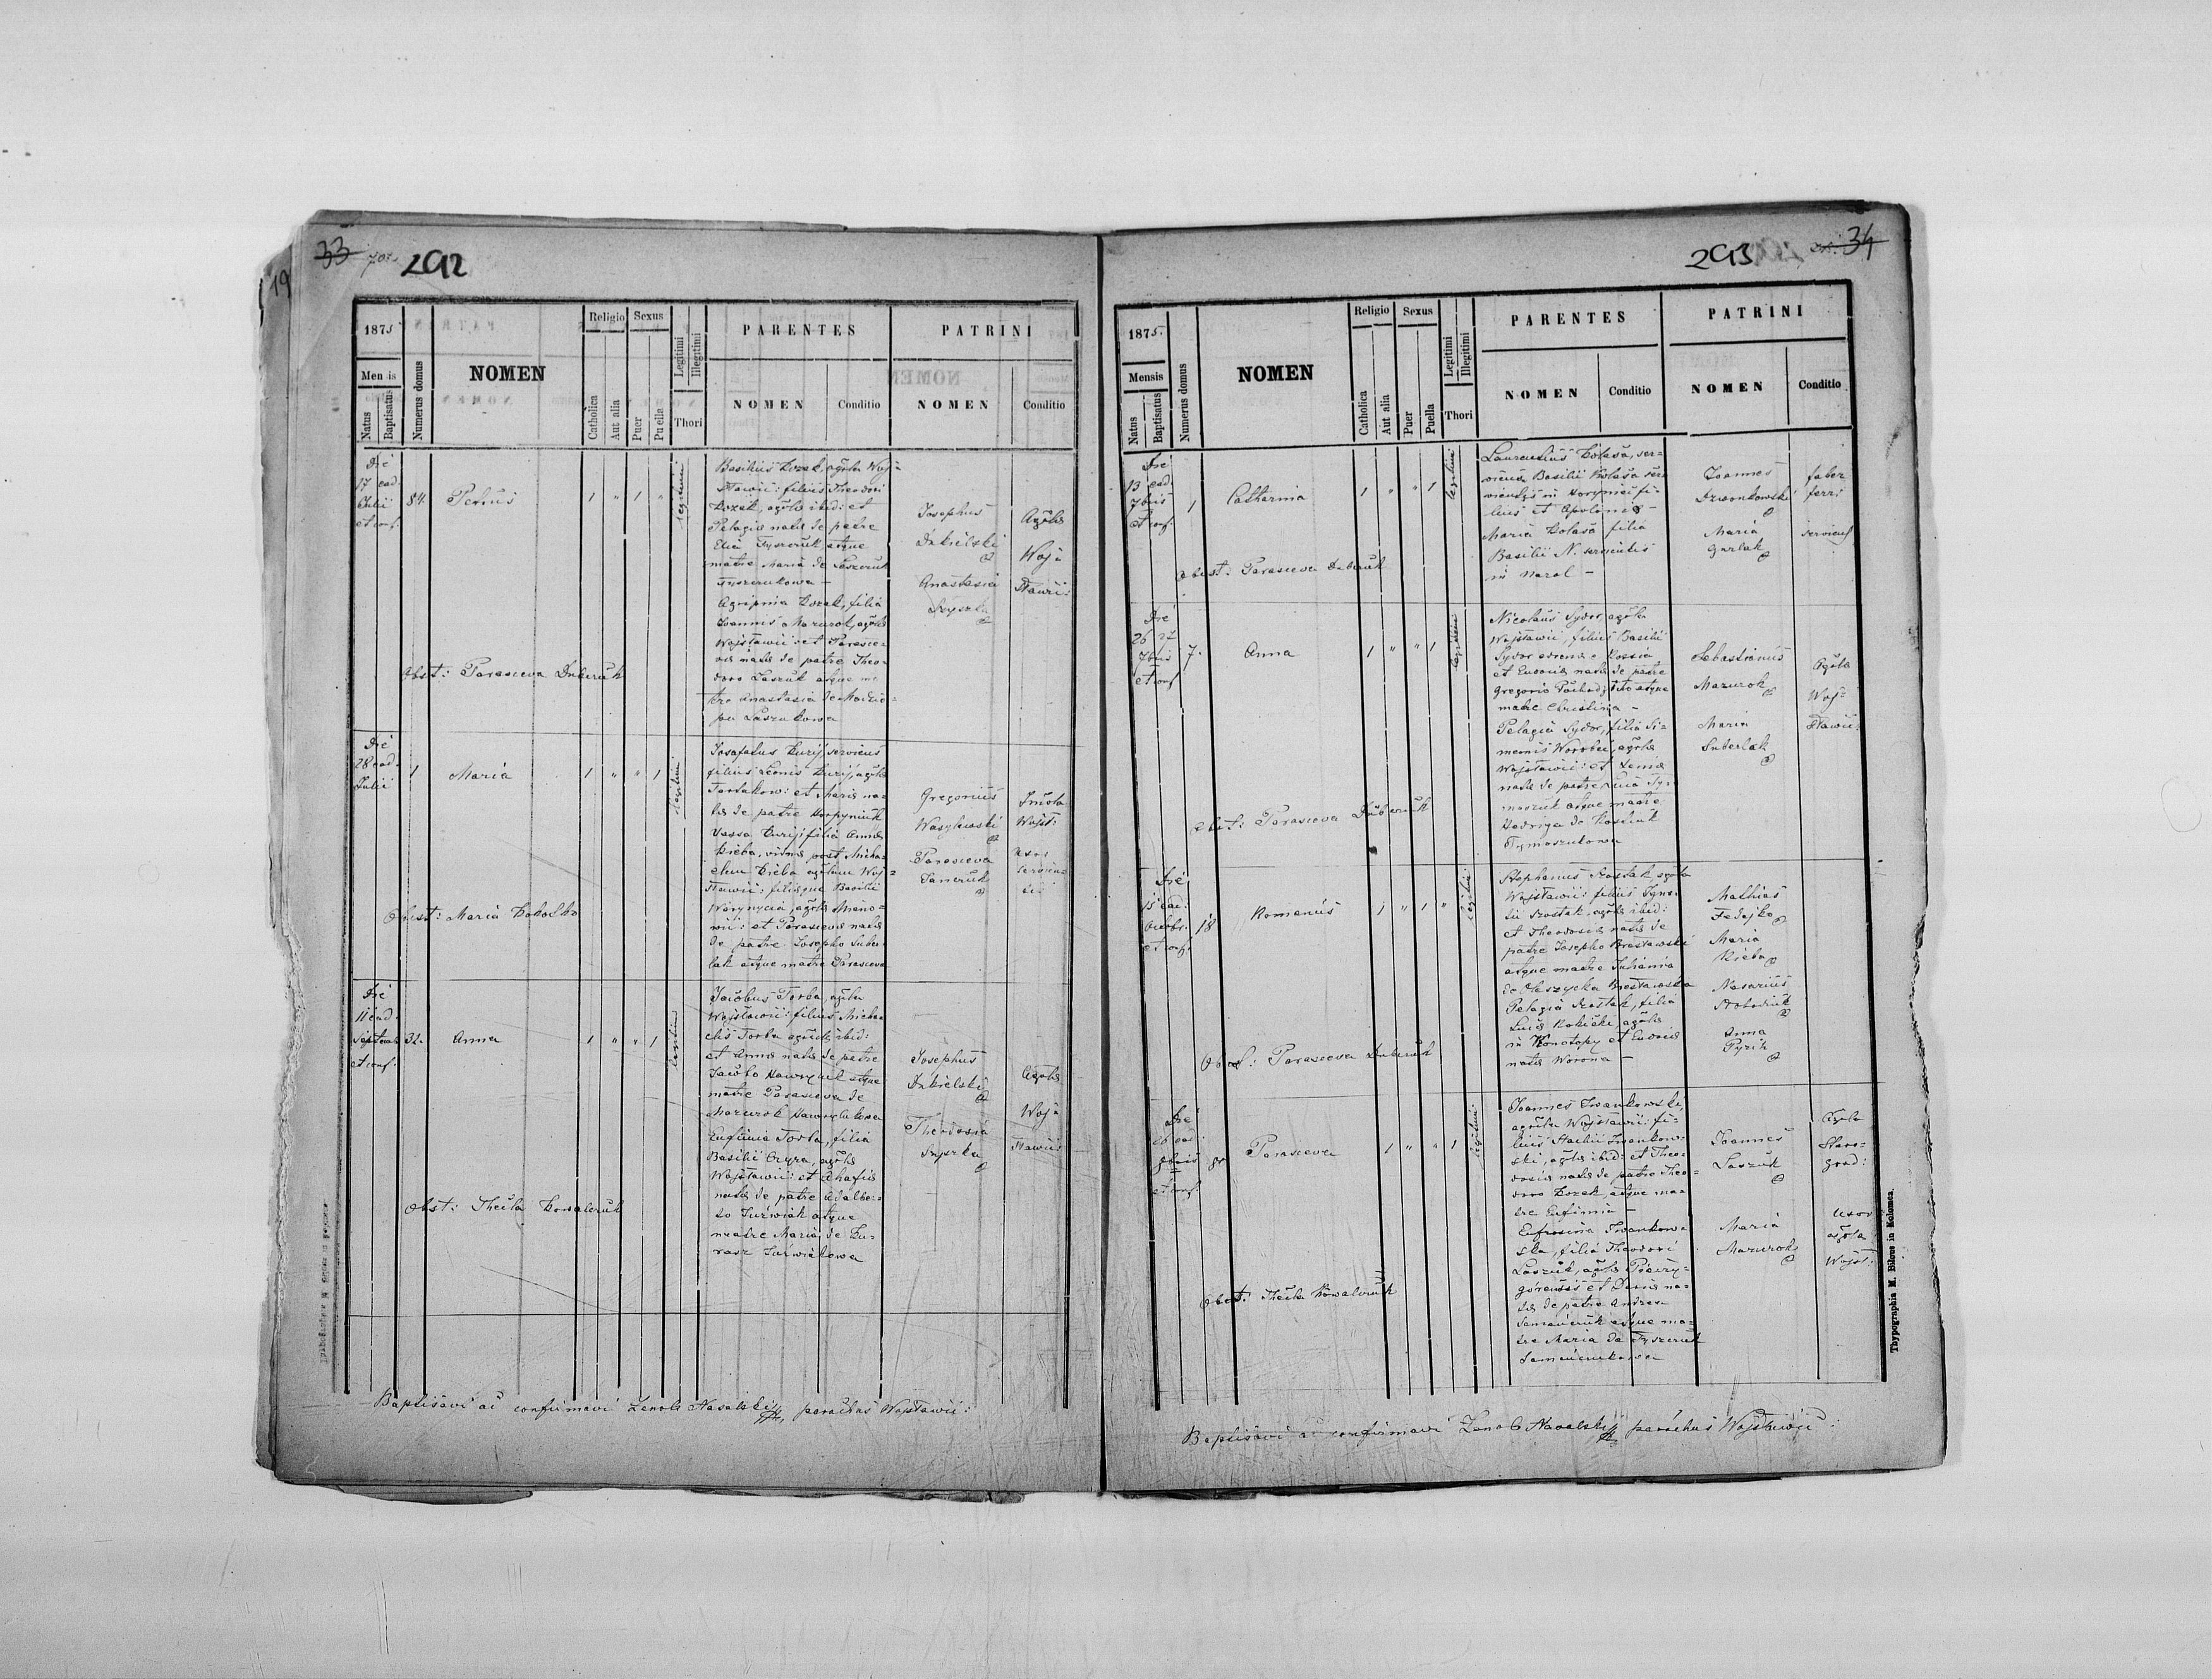 19
33
292
1875
Mensis
Natus
Baptisatus
Numerus domus
NOMEN
Religio
Catholica
Aut alia
Sexus
Puer
Puella
Legitimi
Illegitimi
Thori
PARENTES
NOMEN
Conditio
PATRINI
NOMEN
Conditio
Die
17 ead.
Julii
et conf.
84.
Petrus
1 " 1 "
legitimi
Basilius Kozak, agõla Woj=
sławii: filius Theodori
Kozak, agõlæ ibid: et
Pelagiæ natæ de patre
Elia Tyszeruk atque
matre Maria de Łaszczuk
Tyszerukowa –
Agripina Kozak, filia
Joannis Mazurok, agõlæ
Wojsławii: et Parasce=
væ natæ de patre Theo=
doro Łaszuk atque ma
tre Anastasia de
Łaszukowa
Josephus
Dukielski
Anastasia
Szyszka
Agõlæ
Woj=
sławii:
Obst: Parasceva Duberuk
Die
28 ead.
Julii
1
Maria
1 " " 1
legitimi
Josafatus Kurij serviens
filius Leonis Kurij, agõlæ
Tartakow: et Mariæ na=
tæ de patre Korpyniuk
Vassa Kurij filia Annæ
Kieba, viduæ post Micha=
elem Kieba agõlam Woj=
sławii: filiæque Basilii
Worynycia, agõlæ
wii: et Parascevæ natæ
de patre Josepho Suber=
lak atque matre Parasceva
Gregorius
Wasylewski
Parasceva
Saneruk
Inõla
Wojsł:
uxor
servien=
tis
Obst: Maria Kokoszko
Die
11 ead.
Septemb.
et conf.
32.
Anna
1 " " 1
legitimi
Jacobus Torba, agõla
Wojsławii: filius Micha=
elis Torba agõlæ ibid:
et Annæ natæ de patre
Jacobo Hawryluk atque
matre Parasceva de
Mazurok Hawrylukowa
Eufimia Torba, filia
Basilii Cyra, agõlæ
Wojsławii: et Ahafiæ
natæ de patre Adalber=
to Jurwiak atque
matre Maria de Ku=
rasz Jurwiakowa
Josephus
Dukielski
Theodosia
Szyszka
Agõlæ
Woj=
sławii:
Obst: Thecla Kowaleruk
Baptisavi ac confirmavi Zenob Nawalskij, parochus Wojsławii:
34
293
1875.
Mensis
Natus
Baptisatus
Numerus domus
NOMEN
Religio
Catholica
Aut alia
Sexus
Puer
Puella
Legitimi
Illegitimi
Thori
PARENTES
NOMEN
Conditio
PATRINI
NOMEN
Conditio
Die
13 ead.
7bris
et conf.
1
Catharina
1 " " 1
legitimi
Laurentius Kolasa, ser=
viens Basilii Kolasa ser=
vientis in Horyniec fi=
lius et Apoloniæ –
Maria Kolasa filia
Basilii N. servientis
in Narol –
Joannes
Dzwonkowski
Maria
Garlak
faber
ferri
serviens
Obst: Parasceva Duberuk
Die
26 27
7bris
et conf
7.
Anna
1 " " 1
legitimi
Nicolaus Sydor, agõla
Wojsławii, filius Basilii
Sydor e Rossia
et Eudociæ natæ de patre
Gregorio atque
matre Christina –
Pelagia Sydor, filia Si=
meonis Worobei, agõlæ
Wojsławii: et Xeniæ
natæ de patre Luca Ty=
moszuk atque matre
Hedviga de Kostiuk
Tymoszukowa
Sebastianus
Mazurok
Maria
Suberlak
Agõlæ
Woj=
sławii:
Obst: Parasceva Duberuk
Die
15 ead:
Octobr.
et conf.
18
Romanus
1 " 1 "
legitimi
Stephanus Szostak, agõla
Wojsławii: filius Igna=
tii Szostak, agõlæ ibid:
et Theodosiæ natæ de
patre Josepho Brestawski
atque matre Juliania
de Oleszycka Brestawska
Pelagia Szostak, filia
Lucæ Rokicki, agõlæ
in Konotopy et Eudociæ
natæ Worona –
Mathias
Fedejko
Maria
Kieba
Nasarius
Stolodiuk
Anna
Pyrih
Obst: Parasceva Duberuk
Die
26 ead.
8bris
et conf.
Parasceva
1 " " 1
legitimi
Joannes Iwankowski,
agõla Wojsławii: fi=
lius Stachii Iwankow=
ski, agõlæ ibid: et Theo=
dosiæ natæ de patre Theo=
doro Kozak, atque ma=
tre Eufimia –
Eufrosina Iwankow=
ska, filia Theodori
Łaszuk, agõlæ
et Dariæ na=
tæ de patre Andrea
Semeneruk atque ma=
tre Maria de Tyszeruk
Semenerukowa
Joannes
Łaszuk
Maria
Mazurok
Agõla
Staro=
grod:
uxor
agõlæ
Wojsł:
Obst: Thecla Kowaleruk
Baptisavi ac confirmavi Zenob Nawalskij parochus Wojsławii:
Thypographia M. Bilous in Kolomea.